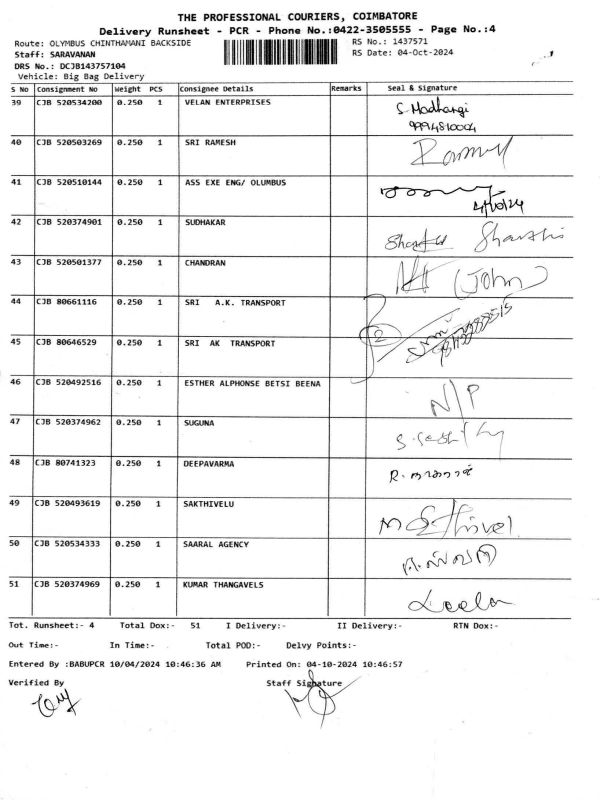 THE PROFESSIONAL COURIERS, COIMBATORE
Delivery Runsheet - PCR - Phone No.:0422-3505555 - Page No.:4
Route: OLYMBUS CHINTHAMANI BACKSIDE RS No.: 1437571
Staff: SARAVANAN RS Date: 04-Oct-2024
DRS No.: DCJB143757104
Vehicle: Big Bag Delivery
S No Consignment No Weight PCS Consignee Details Remarks Seal & Signature
39 CJB 520534200 0.250 1 VELAN ENTERPRISES S. Madhangi
9994810004
40 CJB 520503269 0.250 1 SRI RAMESH
41 CJB 520510144 0.250 1 ASS EXE ENG/ OLUMBUS
4/10/24
42 CJB 520374901 0.250 1 SUDHAKAR
43 CJB 520501377 0.250 1 CHANDRAN (John)
44 CJB 80661116 0.250 1 SRI A.K. TRANSPORT
2
45 CJB 80646529 0.250 1 SRI AK TRANSPORT
46 CJB 520492516 0.250 1 ESTHER ALPHONSE BETSI BEENA N/P
47 CJB 520374962 0.250 1 SUGUNA
48 CJB 80741323 0.250 1 DEEPAVARMA
49 CJB 520493619 0.250 1 SAKTHIVELU
50 CJB 520534333 0.250 1 SAARAL AGENCY
51 CJB 520374969 0.250 1 KUMAR THANGAVELS Leela
Tot. Runsheet:- 4 Total Dox:- 51 I Delivery:- II Delivery:- RTN Dox:-
Out Time:- In Time:- Total POD:- Delvy Points:-
Entered By :BABUPCR 10/04/2024 10:46:36 AM Printed On: 04-10-2024 10:46:57
Verified By Staff Signature